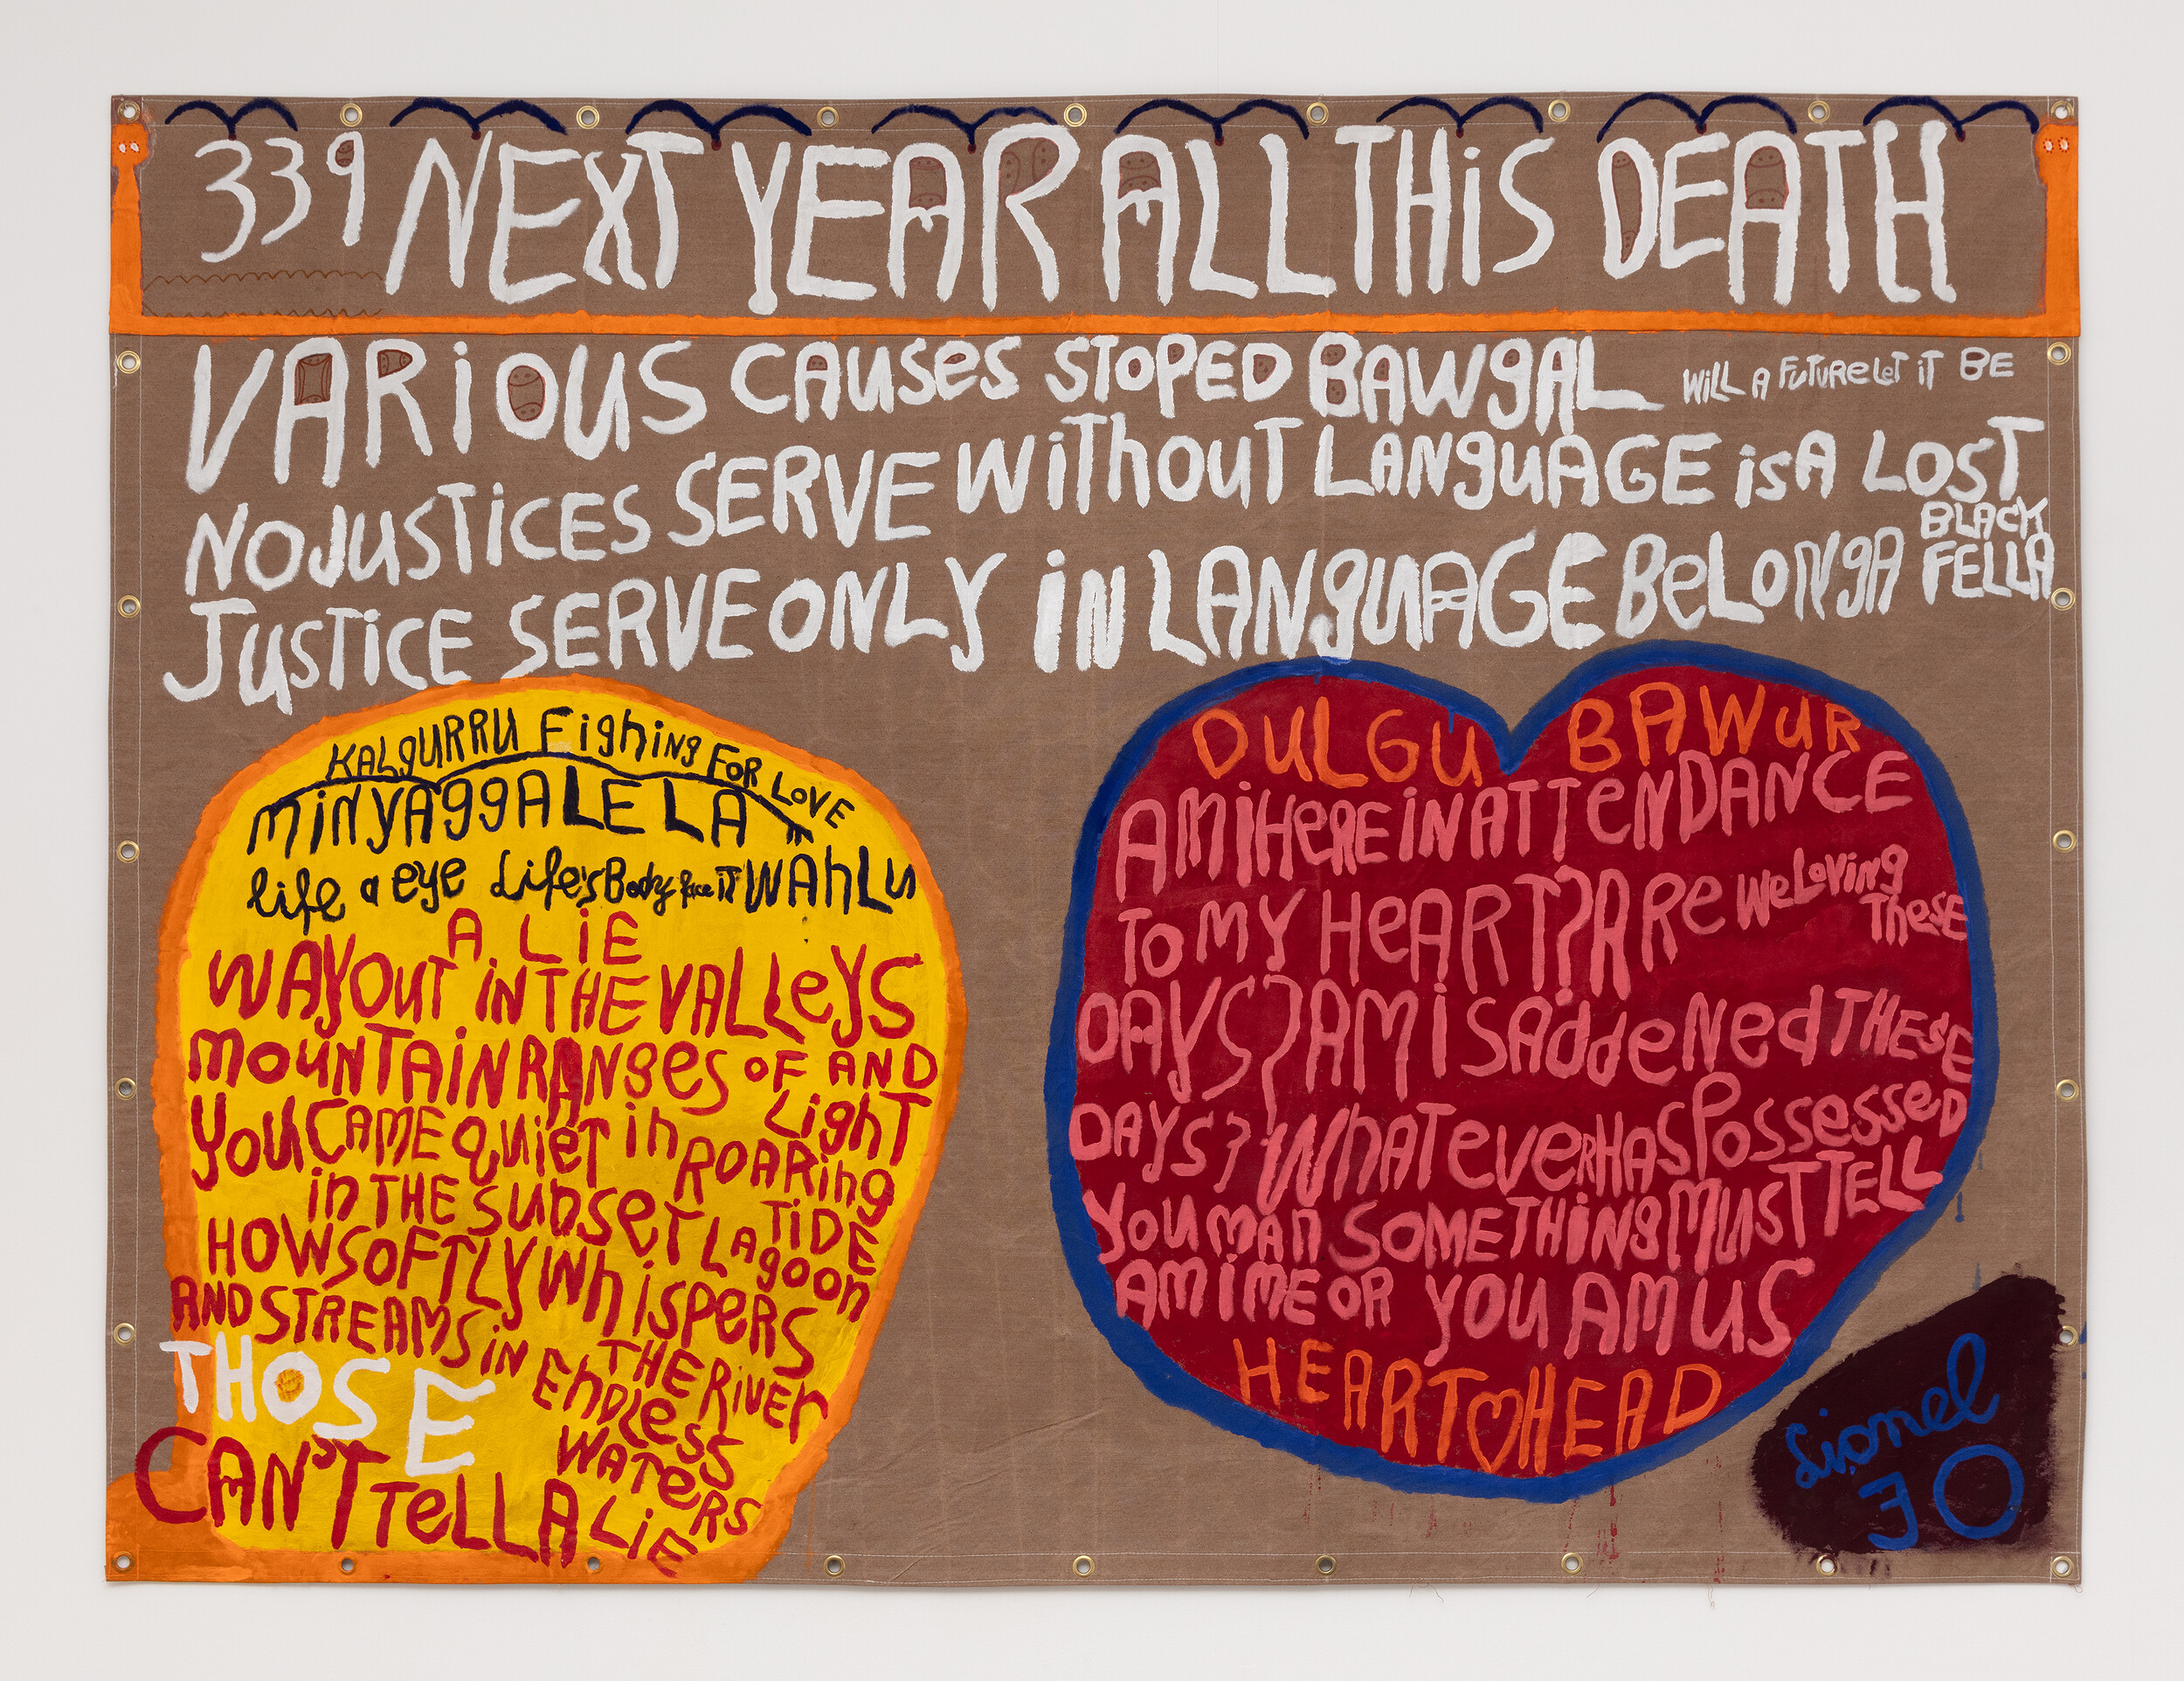 339 NEXT YEAR ALL THiS DEATH
VARiOUS CAUSES STOPED BAWgAL WiLL A FUTURE LeT iT BE
NO JUSTiCES SERVE WiThOUT LANgUAGE iS A LOST
JUSTiCE SERVE ONLY iN LANgUAGE BeLONgA BLACK FELLA
KALgURRU FighiNg FOR LOVE
MiNYAggALELA
life a eye Life's Body face iT WAhLU
A LiE
WAYOUT iN THE VALLeYS
MOUNTAiN RANgeS OF AND
YOU CAME QUieT in ROARing LighT
in THE SUNSeT LAgOOn TiDE
HOW SOFTLY WhiSPERS
AND STREAMS iN THE RiVER
ENDLeSS
WATeRS
THOSE
CAN'T TeLL A LiE
DULGU BAWUR
AM i HeRE iN ATTeNDANCE
TO MY HeART? ARe We LOViNg TheSE
DAYS? AM i SAddeNed THESE
DAYS? WhATeVeR HAS POSSeSSeD
YOU MAN SOMETHiNg MUST TELL
AM i ME OR YOU AM US
HEART HEAD
Lionel
JO